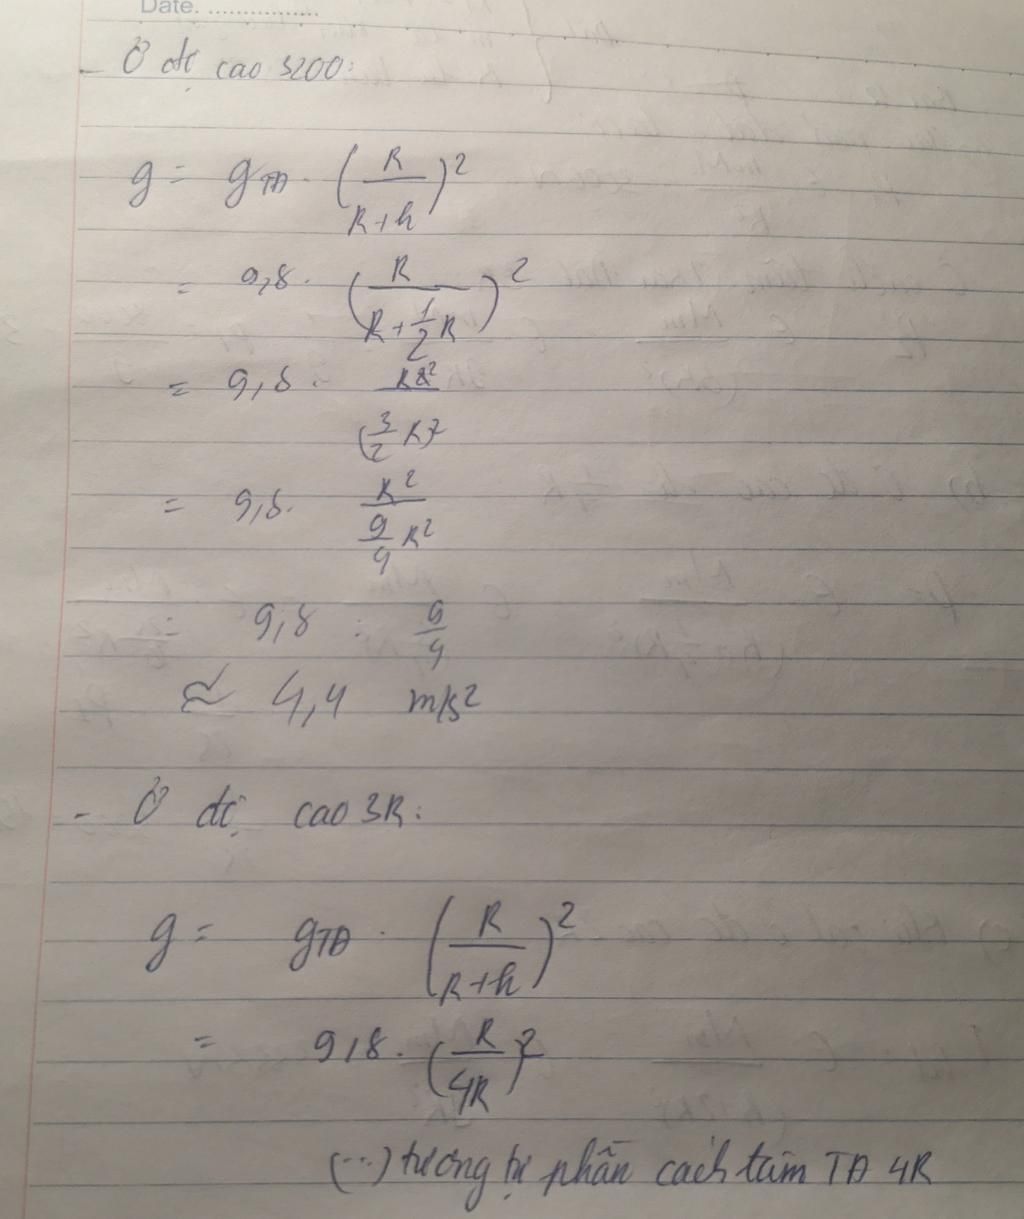 Date. ..................
- Ở độ cao 3200:
g = gTĐ . (R/(R+h))²
= 9,8 . (R/(R+1/2R))²
= 9,8 . R²/(3/2R)²
= 9,8. R²/(9/4R²)
= 9,8 : 9/4
≈ 4,4 m/s²
- Ở độ cao 3R:
g = gTĐ . (R/(R+h))²
= 9,8 . (R/4R)²
(...) tương tự phần cách tâm TĐ 4R